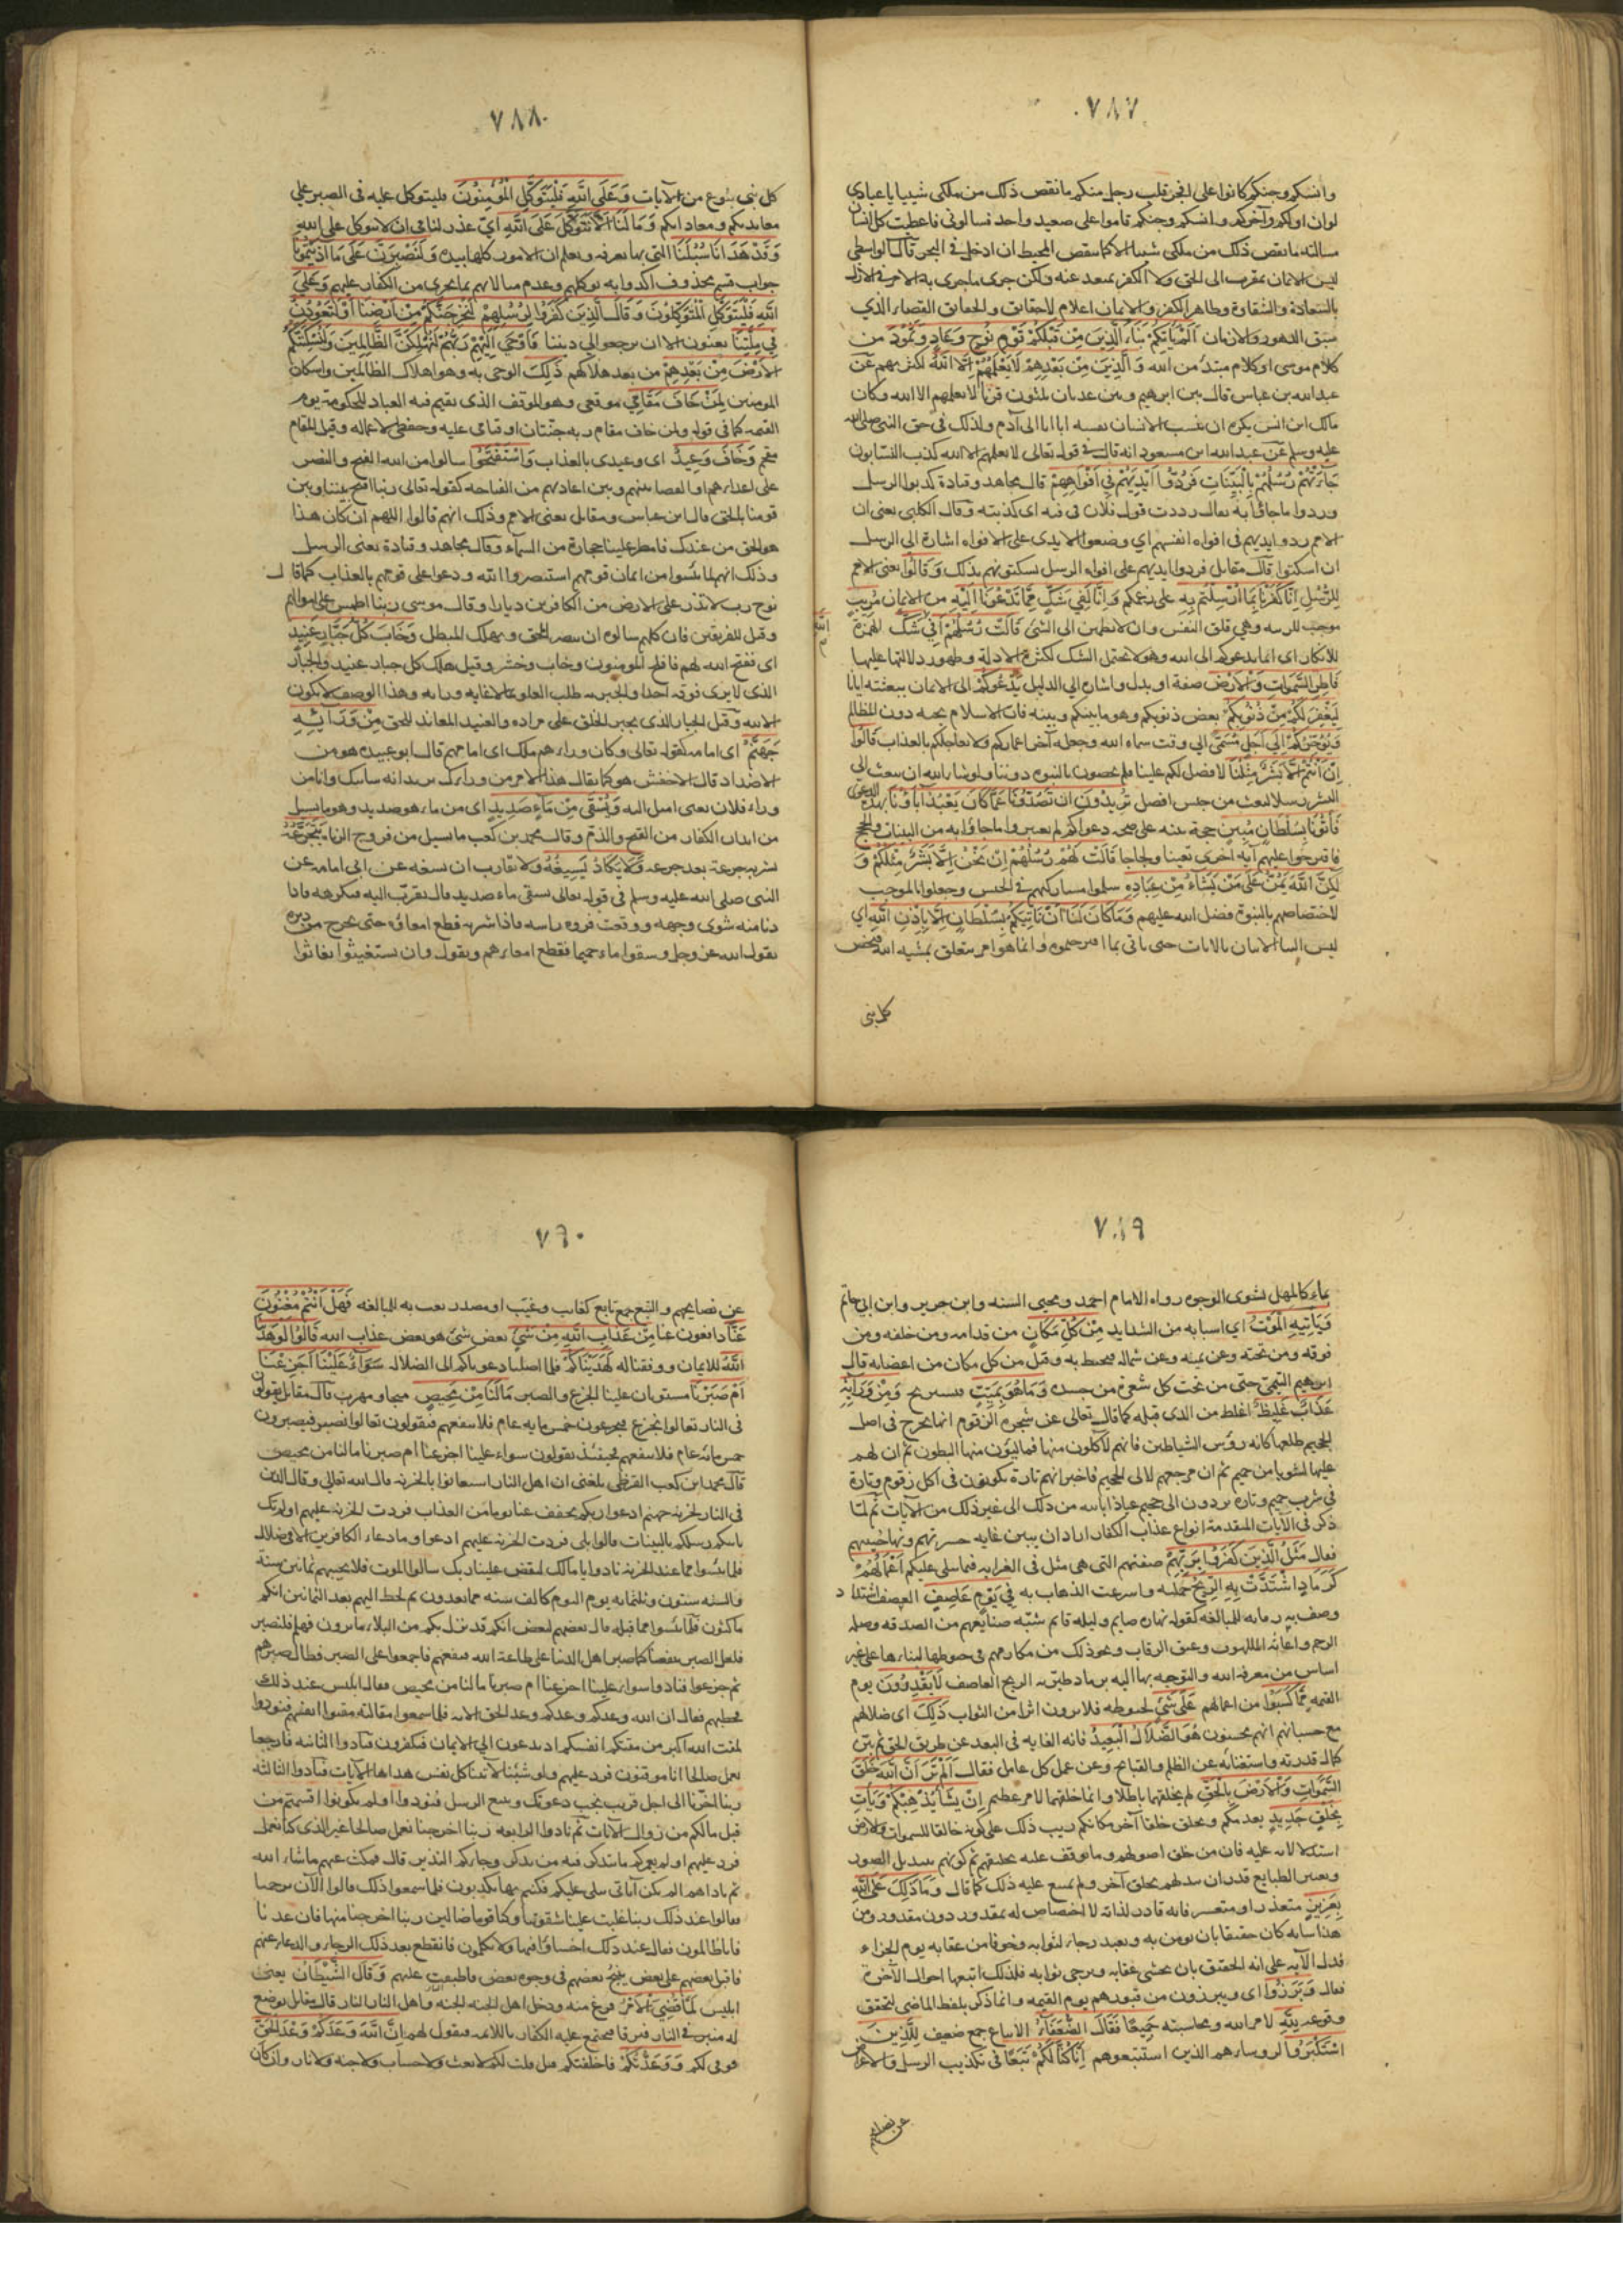 ٧٨٧
وانسكم وجنكم كانوا على افجر قلب رجل منكم ما نقص ذلك من ملكي شيئا يا عبادي
لو ان اولكم وآخركم وانسكم وجنكم قاموا على صعيد واحد فسالوني فاعطيت كل انسان
مسالته ما نقص ذلك من ملكي شيئا الا كما ينقص المحيط ان ادخل في البحر قال الواسطي
ليس الايمان بمقرب الى الحق ولا الكفر بمبعد عنه ولكن جرى ما جرى به الامر في الازل
بالسعادة والشقاوة وظاهر الكفر والايمان اعلام لاحقائق والحقائق القضاء الذي
سبق الدهور والازمان اَلَمْ يَاتِكُمْ نَبَاءُ الَّذِينَ مِنْ قَبْلِكُمْ قَوْمِ نُوحٍ وَعَادٍ وَثَمُودَ من
كلام موسى او كلام مبتدٌ من الله وَالَّذِينَ مِنْ بَعْدِهِمْ لَا يَعْلَمُهُمْ اِلَّا اللَّهُ لكثرتهم عن
عبد الله بن عباس قال بين ابرهيم وبين عدنان ثلثون قرنا لا يعلمهم الا الله وكان
مالك ابن انس يكره ان ينسب الانسان نفسه ابا ابا الى آدم وكذلك في حق النبي صلى الله
عليه وسلم عن عبد الله ابن مسعود انه قال في قوله تعالى لا يعلمهم الا الله كذب النسابون
جَاءَتْهُمْ رُسُلُهُمْ بِالْبَيِّنَاتِ فَرَدُّوا اَيْدِيَهُمْ فِي اَفْوَاهِهِمْ قال مجاهد وقتادة كذبوا الرسل
وردوا ما جاؤا به يقال رددت قول فلان في فيه اي كذبته وقال الكلبي يعني ان
الامم ردوا ايديهم في افواه انفسهم اي وضعوا الايدي على الافواه اشارة الى الرسل
ان اسكتوا قال مقاتل فردوا ايديهم على افواه الرسل يسكتونهم بذلك وَقَالُوا يعني الامم
لِلرُّسُلِ اِنَّا كَفَرْنَا بِمَا اُرْسِلْتُمْ بِهِ على زعمكم وَاِنَّا لَفِي شَكٍّ مِمَّا تَدْعُونَنَا اِلَيْهِ من الايمان مُرِيبٍ
موجب للريبة وهي قلق النفس وان لا تطمئن الى الشئ قَالَتْ رُسُلُهُمْ اَفِي اللَّهِ شَكٌّ الهمزة
للانكار اي انما ندعوكم الى الله وهو لا يحتمل الشك لكثرة الادلة وظهور دلالتها عليها
فَاطِرِ السَّمٰوَاتِ وَالْاَرْضِ صفة او بدل واشار الي الدليل يَدْعُوكُمْ الى الايمان ببعثته ايانا
لِيَغْفِرَ لَكُمْ مِنْ ذُنُوبِكُمْ بعض ذنوبكم وهو ما بينكم وبينه فان الاسلام يجبه دون المظالم
وَيُؤَخِّرَكُمْ اِلَى اَجَلٍ مُسَمًّى الي وقت سماه الله وجعله آخر اعماركم ولا يعاجلكم بالعذاب قَالُوا
اِنْ اَنْتُمْ اِلَّا بَشَرٌ مِثْلُنَا لا فضل لكم علينا فلم تخصون بالنبوة دوننا ولو شاء الله ان يبعث الي
البشر رسلا لبعث من جنس افضل تُرِيدُونَ اَنْ تَصُدُّونَا عَمَّا كَانَ يَعْبُدُ آبَاؤُنَا بهذه الدعوى
فَاْتُونَا بِسُلْطَانٍ مُبِينٍ حجة بينة على صحة دعواكم لم يعتبروا ما جاؤا به من البينات والحجج
فاقترحوا عليهم آية اخرى تعنتا ولجاجا قَالَتْ لَهُمْ رُسُلُهُمْ اِنْ نَحْنُ اِلَّا بَشَرٌ مِثْلُكُمْ وَ
لَكِنَّ اللَّهَ يَمُنُّ عَلَى مَنْ يَشَاءُ مِنْ عِبَادِهِ سلموا مشاركتهم في الجنس وجعلوا الموجب
لاختصاصهم بالنبوة فضل الله عليهم وَمَا كَانَ لَنَا اَنْ نَاتِيَكُمْ بِسُلْطَانٍ اِلَّا بِاِذْنِ اللَّهِ اي
ليس الينا الاتيان بالايات حتى ناتي بما اقترحتموه وانما هو امر متعلق بمشية الله فيخص
كل نبي
٧٨٨
كل نبي بنوع من الآيات وَعَلَى اللَّهِ فَلْيَتَوَكَّلِ الْمُؤْمِنُونَ فليتوكل عليه في الصبر على
معاندتكم ومعاداتكم وَمَا لَنَا اَلَّا نَتَوَكَّلَ عَلَى اللَّهِ اي عذر لنا في ان لا نتوكل على الله
وَقَدْ هَدَانَا سُبُلَنَا التي بها نعرفه ونعلم ان الامور كلها بيده وَلَنَصْبِرَنَّ عَلَى مَا آذَيْتُمُونَا
جواب قسم محذوف اكدوا به توكلهم وعدم مبالاتهم بما يجري من الكفار عليهم وَعَلَى
اللَّهِ فَلْيَتَوَكَّلِ الْمُتَوَكِّلُونَ وَقَالَ الَّذِينَ كَفَرُوا لِرُسُلِهِمْ لَنُخْرِجَنَّكُمْ مِنْ اَرْضِنَا اَوْ لَتَعُودُنَّ
فِي مِلَّتِنَا يعنون الا ان ترجعوا الي ديننا فَاَوْحَى اِلَيْهِمْ رَبُّهُمْ لَنُهْلِكَنَّ الظَّالِمِينَ وَلَنُسْكِنَنَّكُمُ
الْاَرْضَ مِنْ بَعْدِهِمْ من بعد هلاكهم ذَلِكَ الوحى به وهو اهلاك الظالمين واسكان
المومنين لِمَنْ خَافَ مَقَامِي موقفي وهو الموقف الذى يقيم فيه العباد للحكومة يوم
القيمه كما في قوله ولمن خاف مقام ربه جنتان او قيامى عليه وحفظي لاعماله وقيل المقام
مقحم وَخَافَ وَعِيدِ اى وعيدى بالعذاب وَاسْتَفْتَحُوا سالوا من الله الفتح والنصر
على اعدائهم او القضاء بينهم وبين اعاديهم من الفتاحة كقوله تعالى ربنا افتح بيننا وبين
قومنا بالحق قال ابن عباس ومقاتل يعنى الامم وذلك انهم قالوا اللهم ان كان هذا
هو الحق من عندك فامطر علينا حجارة من السماء وقال مجاهد وقتادة يعنى الرسل
وذلك انهم لما يئسوا من ايمان قومهم استنصروا الله ودعوا على قومهم بالعذاب كما قال
نوح رب لا تذر على الارض من الكافرين ديارا وقال موسى ربنا اطمس على اموالهم
وقيل للفريقين فان كلهم سالوه ان ينصر المحق ويهلك المبطل وَخَابَ كُلُّ جَبَّارٍ عَنِيدٍ
اى ففتح الله لهم فافلح المومنون وخاب وخسر وقيل هلك كل جبار عنيد والجبار
الذى لا يرى فوقه احدا والجبرية طلب العلو بما لا غاية وراءه وهذا الوصف لا يكون
الا لله وقيل الجبار الذى يجبر الخلق على مراده والعنيد المعاند للحق مِنْ وَرَائِهِ
جَهَنَّمُ اى امامه كقوله تعالى وكان وراءهم ملك اى امامهم قال ابو عبيده هو من
الاضداد قال الاخفش هو كما يقال هذا الامر من ورائك يريد انه سياتيك وانا من
وراء فلان يعنى اصل اليه وَيُسْقَى مِنْ مَاءٍ صَدِيدٍ اى من ماء هو صديد وهو ما يسيل
من ابدان الكفار من القيح والدم وقال محمد بن كعب ما يسيل من فروج الزناة يَتَجَرَّعُهُ
يشربه جرعة بعد جرعة وَلَا يَكَادُ يُسِيغُهُ ولا يقارب ان يسيغه عن ابى امامه عن
النبى صلى الله عليه وسلم في قوله تعالى يسقى ماء صديد قال يقرب اليه فيكرهه فاذا
دنا منه شوى وجهه ووقعت فروه راسه فاذا شربه قطع امعاؤه حتى يخرج من دبره
يقول الله عز وجل وسقوا ماء حميما فقطع امعاءهم ويقول وان يستغيثوا يغاثوا
٧٨٩
بماء كالمهل يشوى الوجوه رواه الامام احمد ومحيى السنه وابن جرير وابن ابي حاتم
وَيَاْتِيهِ الْمَوْتُ اي اسبابه من الشدايد مِنْ كُلِّ مَكَانٍ من قدامه ومن خلفه ومن
فوقه ومن تحته وعن يمينه وعن شماله فيحيط به وقيل من كل مكان من اعضايه قال
ابرهيم التيمى حتى من تحت كل شعرة من جسده وَمَا هُوَ بِمَيِّتٍ فيستريح وَمِنْ وَرَائِهِ
عَذَابٌ غَلِيظٌ اغلظ من الذى قبله كما قال تعالى عن شجرة الزقوم انها تخرج في اصل
الجحيم طلعها كانه رؤس الشياطين فانهم لآكلون منها فمالئون منها البطون ثم ان لهم
عليها لشوبا من حميم ثم ان مرجعهم لالى الجحيم فاخبر انهم تارة يكونون فى اكل زقوم وتارة
فى شرب حميم وتارة يردون الى جحيم عياذا بالله من ذلك الى غير ذلك من الآيات ثم لما
ذكر في الآيات المتقدمة انواع عذاب الكفار اراد ان يبين غاية حسرتهم ونهاية خيبتهم
فقال مَثَلُ الَّذِينَ كَفَرُوا بِرَبِّهِمْ صفتهم التى هى مثل فى الغرابه فيما يتلى عليكم اَعْمَالُهُمْ
كَرَمَادٍ اشْتَدَّتْ بِهِ الرِّيحُ حملته واسرعت الذهاب به فِي يَوْمٍ عَاصِفٍ العصف اشتداد
وصف به زمانه للمبالغة كقوله نهاره صايم وليله قايم شبه صنايعهم من الصدقه وصلة
الرحم واعانة الملهوف وعتق الرقاب ونحو ذلك من مكارمهم في حبوطها لبناءها على غير
اساس من معرفة الله والتوجه بها اليه برماد طيرته الريح العاصف لَا يَقْدِرُونَ يوم
القيمه مِمَّا كَسَبُوا من اعمالهم عَلَى شَيْءٍ لحبوطه فلا يرون اثرا من الثواب ذَلِكَ اى ضلالهم
مع حسبانهم انهم محسنون هُوَ الضَّلَالُ الْبَعِيدُ فانه الغاية فى البعد عن طريق الحق ثم بين
كمال قدرته واستغنائه عن الظلم والقبائح وعن عمل كل عامل فقال اَلَمْ تَرَ اَنَّ اللَّهَ خَلَقَ
السَّمٰوَاتِ وَالْاَرْضَ بِالْحَقِّ لم يخلقها باطلا وانما خلقهما لامر عظيم اِنْ يَشَأْ يُذْهِبْكُمْ وَيَاْتِ
بِخَلْقٍ جَدِيدٍ بعدمكم ويخلق خلقا آخر مكانكم رتب ذلك على كونه خالقا للسموات والارض
استدلالا به عليه فان من خلق اصولهم وما يتوقف عليه تخليقهم ثم كونهم بتبديل الصور
وتغيير الطبايع قدر ان يبدلهم بخلق آخر ولم يمتنع عليه ذلك كما قال وَمَا ذَلِكَ عَلَى اللَّهِ
بِعَزِيزٍ متعذر او متعسر فانه قادر لذاته لا اختصاص له بمقدور دون مقدور ومن
هذا شانه كان حقيقا بان يومن به ويعبد رجاء لثوابه وخوفا من عقابه يوم الجزاء
فدل الآيه على انه الحقيق بان يخشى عقابه ويرجى ثوابه فلذلك اتبعها احوال الآخرة
فقال وَبَرَزُوا اى ويبرزون من قبورهم يوم القيمه وانما ذكر بلفظ الماضى لتحقق
وقوعه لِلَّهِ لامر الله ومحاسبته جَمِيعًا فَقَالَ الضُّعَفَاءُ الاتباع جمع ضعيف لِلَّذِينَ
اسْتَكْبَرُوا لروسائهم الذين استتبعوهم اِنَّا كُنَّا لَكُمْ تَبَعًا فى تكذيب الرسل والاعراض
عن نصايحهم
٧٩٠
عن نصايحهم والتبع جمع تابع كغايب وغيب او مصدر نعت به للمبالغه فَهَلْ اَنْتُمْ مُغْنُونَ
عَنَّا دافعون عنا مِنْ عَذَابِ اللَّهِ مِنْ شَيْءٍ بعض شئ هو بعض عذاب الله قَالُوا لَوْ هَدَانَا
اللَّهُ للايمان ووفقنا له لَهَدَيْنَاكُمْ فلما اضلنا دعوناكم الى الضلاله سَوَاءٌ عَلَيْنَا اَجَزِعْنَا
اَمْ صَبَرْنَا مستويان علينا الجزع والصبر مَا لَنَا مِنْ مَحِيصٍ منجا ومهرب قال مقاتل يقولون
فى النار تعالوا نجزع فيجزعون خمس مايه عام فلا ينفعهم فيقولون تعالوا نصبر فيصبرون
خمس مائة عام فلا ينفعهم فحينئذ يقولون سواء علينا اجزعنا ام صبرنا ما لنا من محيص
قال محمد ابن كعب القرظى بلغنى ان اهل النار استغاثوا بالخزنة قال الله تعالي وقال الذين
فى النار لخزنة جهنم ادعوا ربكم يخفف عنا يوما من العذاب فردت الخزنة عليهم اولم تك
تاتيكم رسلكم بالبينات قالوا بلى فردت الخزنة عليهم ادعوا وما دعاء الكافرين الا فى ضلال
فلما يئسوا مما عند الخزنة نادوا يا مالك ليقض علينا ربك سالوا الموت فلا يجيبهم ثمانين سنة
والسنه ستون وثلثمايه يوم اليوم كالف سنه مما تعدون ثم لحظ اليهم بعد الثمانين انكم
ماكثون فلما يئسوا مما قبله قال بعضهم لبعض انكم قد نزل بكم من البلاء ما ترون فهلم فلنصبر
فلعل الصبر ينفعنا كما صبر اهل الدنيا على طاعة الله فنفعهم فاجمعوا على الصبر فطال صبرهم
ثم جزعوا فنادوا سواء علينا اجزعنا ام صبرنا ما لنا من محيص فقال ابليس عند ذلك
فخطبهم فقال ان الله وعدكم وعد الحق الايه فلما سمعوا مقالته مقتوا انفسهم فنودوا
لمقت الله اكبر من مقتكم انفسكم اذ تدعون الي الايمان فتكفرون فنادوا الثانيه فارجعنا
نعمل صالحا انا موقنون فرد عليهم ولو شئنا لآتينا كل نفس هداها الآيات فنادوا الثالثه
ربنا اخرنا الى اجل قريب نجب دعوتك ونتبع الرسل فنودوا اولم تكونوا اقسمتم من
قبل مالكم من زوال الآيات ثم نادوا الرابعه ربنا اخرجنا نعمل صالحا غير الذى كنا نعمل
فرد عليهم اولم نعمركم ما يتذكر فيه من تذكر وجاءكم النذير قال فمكث عنهم ماشاء الله
ثم ناداهم الم تكن آياتى تتلى عليكم فكنتم بها تكذبون فلما سمعوا ذلك قالوا الآن يرحمنا
فقالوا عند ذلك ربنا غلبت علينا شقوتنا وكنا قوما ضالين ربنا اخرجنا منها فان عدنا
فانا ظالمون فقال عند ذلك اخسئوا فيها ولا تكلمون فانقطع بعد ذلك الرجاء والدعاء عنهم
فاقبل بعضهم على بعض ينبح بعضهم فى وجوه بعض فاطبقت عليهم وَقَالَ الشَّيْطَانُ يعنى
ابليس لَمَّا قُضِيَ الْاَمْرُ فرغ منه ودخل اهل الجنه الجنه واهل النار النار قال مقاتل يوضع
له منبر فى النار فيرقاه فيجتمع عليه الكفار باللائمه فيقول لهم اِنَّ اللَّهَ وَعَدَكُمْ وَعْدَ الْحَقِّ
فوفى لكم وَوَعَدْتُكُمْ فَاَخْلَفْتُكُمْ قيل قلت لكم لا بعث ولا حساب ولا جنه ولا نار وان كان